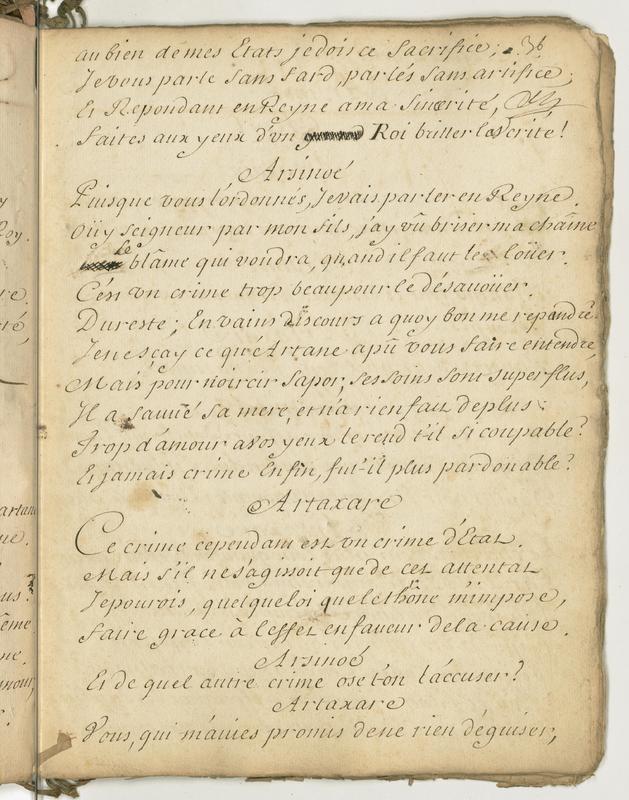 au bien de mes Etats je dois ce Sacrifice; 36
Je vous parle Sans fard, parlés Sans artifice;
Et Repondant en Reyne a ma Sincerité,
faites aux yeux d'vn Roi briller la Verité!
Arsinoé
Puisque vous l'ordonnés, Je vais parler en Reyne.
Oüy seigneur par mon fils, j'ay vû briser ma chaîne
le blâme qui voudra, quand il faut le loüer.
C'est vn crime trop beau pour le désavoüer.
Du reste; En vains discours a quoy bon me repandre.
Je ne sçay ce qu'Artane a pû vous faire entendre,
Mais pour noircir Sapor; ses soins sont superflus,
Il a sauvé sa mere, et n'a rien fait de plus:
Trop d'amour a vos yeux le rend t'il si coupable?
Et jamais crime Enfin, fut-il plus pardonable?
Artaxare
Ce crime cependant est vn crime d'Etat.
Mais s'il ne s'agissoit que de cet attentat
Je pourois, quelque loi que le thône m'impose,
faire grace à l'effet en faveur de la cause.
Arsinoé
Et de quel autre crime ose t'on l'accuser?
Artaxare
Vous, qui m'aviés promis de ne rien déguiser,
artane
ême